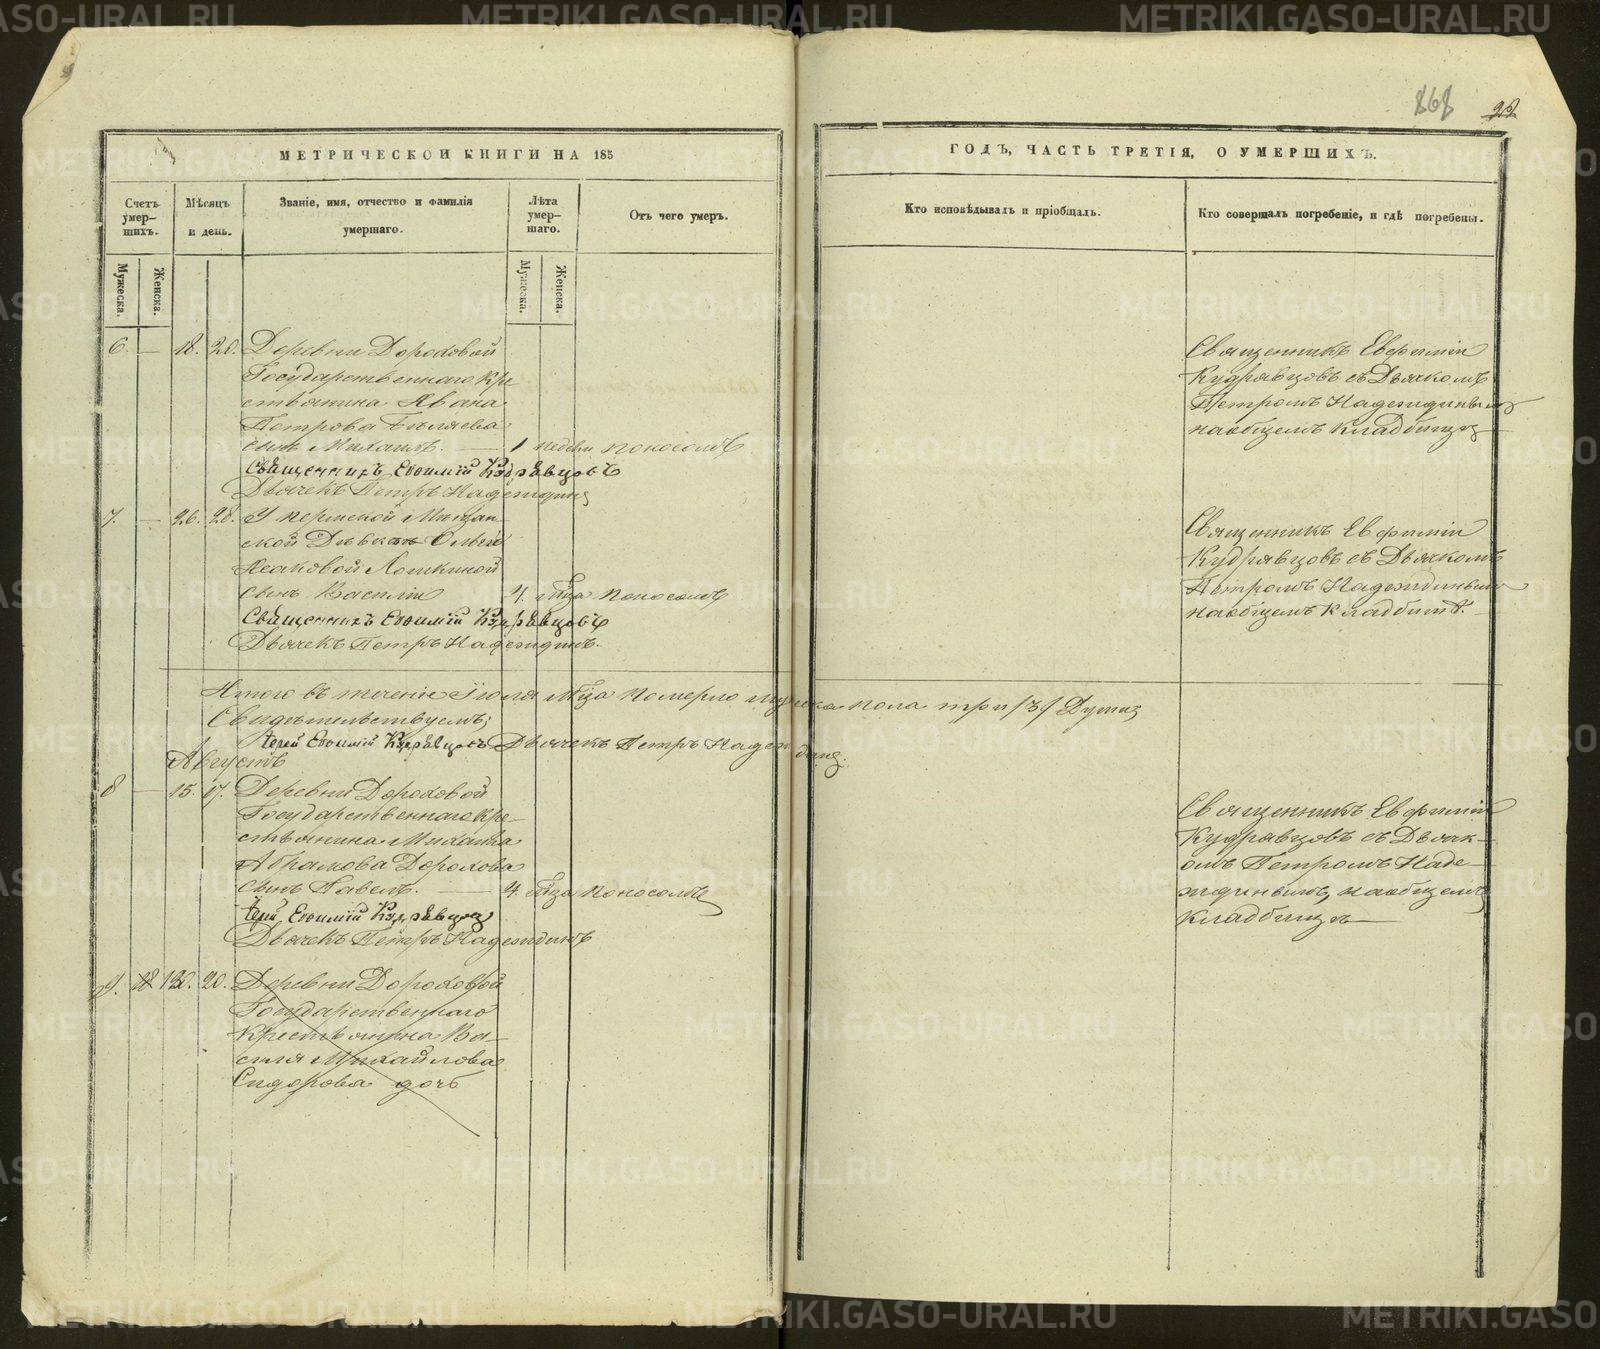 868 92
МЕТРИЧЕСКОЙ КНИГИ НА 185
ГОДЪ, ЧАСТЬ ТРЕТІЯ, О УМЕРШИХЪ.
Счетъ умер-шихъ.
Мужеска.
Женска.
Мѣсяцъ и день.
Званіе, имя, отчество и фамилія умершаго.
Лѣта умер-шаго.
Мужеска.
Женска.
Отъ чего умеръ.
Кто исповѣдывалъ и пріобщалъ.
Кто совершалъ погребеніе, и гдѣ погребены.
6. — 18. 20. Деревни Дороховой
Государственнаго Кре
стьянина Ивана
Петрова Бѣляева
сынъ Михаилъ. — 1 недѣли поносомъ
Священникъ Евѳимій Кудрявцовъ
Дьячекъ Петръ Надеждинъ
Священникъ Евфимій
Кудрявцовъ съ Дьячкомъ
Петромъ Надеждинымъ
наобщемъ Кладбищѣ
7. — 26. 28. У пермской Мѣщан
ской Дѣвки
Исаковой Ложкиной
сынъ Василій 4. мѣсца поносомъ
Священникъ Евѳимій Кудрявцовъ
Дьячекъ Петръ Надеждинъ.
Священникъ Евфимій
Кудрявцовъ съ Дьячкомъ
Петромъ Надеждинымъ
наобщемъ Кладбищѣ.
Итого въ теченіе Іюля мѣсца померло мужеска пола три /3/ Души
Свидѣтельствуемъ;
Іерей Евѳимій Кудрявцовъ Дьячекъ Петръ Надеждинъ.
Августъ
8 — 15. 17. Деревни Дороховой
Государственнаго Кре-
стьянина Михаила
Абрамова Дорохова
сынъ Павелъ. — 4. мѣсца поносомъ
Іерей Евѳимій Кудрявцовъ
Дьячекъ Петръ Надеждинъ
Священникъ Евфимій
Кудрявцовъ съ Дьячк-
омъ Петромъ Наде-
ждинымъ, наобщемъ
Кладбищѣ —
9. 20. Деревни Дороховой
Государственнаго
Крестьянина Ва-
силя Михайлова
Сидорова дочь
METRIKI.GASO-URAL.RU